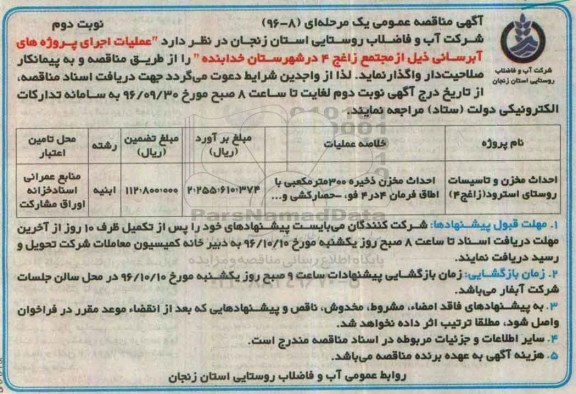 آگهی مناقصه عمومی یک مرحله‌ای (۸-۹۶)
نوبت دوم
شرکت آب و فاضلاب روستایی استان زنجان در نظر دارد "عملیات اجرای پروژه های
آبرسانی ذیل ازمجتمع زاغج ۴ درشهرستان خدابنده" را از طریق مناقصه و به پیمانکار
صلاحیت‌دار واگذار نماید. لذا از واجدین شرایط دعوت می‌گردد جهت دریافت اسناد مناقصه،
از تاریخ درج آگهی نوبت دوم لغایت تا ساعت ۸ صبح مورخ ۹۶/۰۹/۳۰ به سامانه تدارکات
الکترونیکی دولت (ستاد) مراجعه نمایند.
شرکت آب و فاضلاب
روستایی استان زنجان
نام پروژه
خلاصه عملیات
مبلغ بر آورد (ریال)
مبلغ تضمین (ریال)
رشته
محل تامین اعتبار
احداث مخزن و تاسیسات
روستای استرود(زاغج۴)
احداث مخزن ذخیره ۳۰۰مترمکعبی با
اطاق فرمان ۴در۴ فو، -حصارکشی و...
۲/۲۵۵/۶۱۰/۳۷۴
۱۱۲/۸۰۰/۰۰۰
ابنیه
منابع عمرانی
اسنادخزانه
اوراق مشارکت
۱. مهلت قبول پیشنهادها: شرکت کنندگان می‌بایست پیشنهادهای خود را پس از تکمیل ظرف ۱۰ روز از آخرین
مهلت دریافت اسناد تا ساعت ۸ صبح روز یکشنبه مورخ ۹۶/۱۰/۱۰ به دبیر خانه کمیسیون معاملات شرکت تحویل و
رسید دریافت نمایند.
۲. زمان بازگشایی: زمان بازگشایی پیشنهادات ساعت ۹ صبح روز یکشنبه مورخ ۹۶/۱۰/۱۰ در محل سالن جلسات
شرکت آبفار می‌باشد.
۳. به پیشنهادهای فاقد امضاء، مشروط، مخدوش، ناقص و پیشنهادهایی که بعد از انقضاء موعد مقرر در فراخوان
واصل شود، مطلقا ترتیب اثر داده نخواهد شد.
۴. سایر اطلاعات و جزئیات مربوطه در اسناد مناقصه مندرج است.
۵. هزینه آگهی به عهده برنده مناقصه می‌باشد.
روابط عمومی آب و فاضلاب روستایی استان زنجان
ParsNamadData